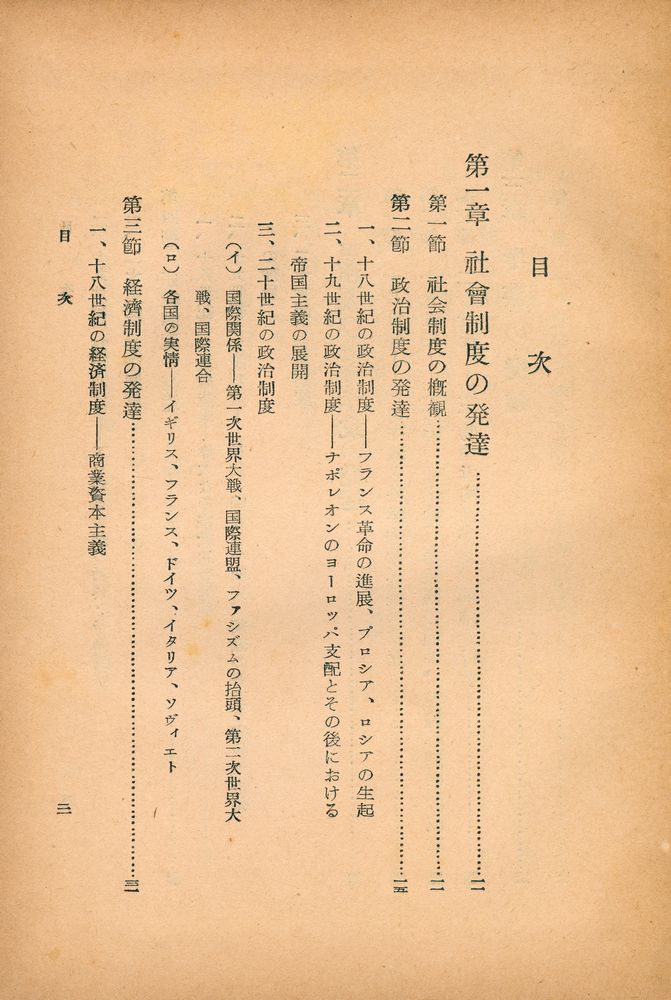 目次
第一章 社會制度の発達……一一
第一節 社会制度の概観……一一
第二節 政治制度の発達……一五
一、十八世紀の政治制度――フランス革命の進展、プロシア、ロシアの生起
二、十九世紀の政治制度――ナポレオンのヨーロッパ支配とその後における
帝国主義の展開
三、二十世紀の政治制度
（イ）国際関係――第一次世界大戦、国際連盟、ファシズムの抬頭、第二次世界大
戦、国際連合
（ロ）各国の実情――イギリス、フランス、ドイツ、イタリア、ソヴィエト
第三節 経済制度の発達……三一
一、十八世紀の経済制度――商業資本主義
目次